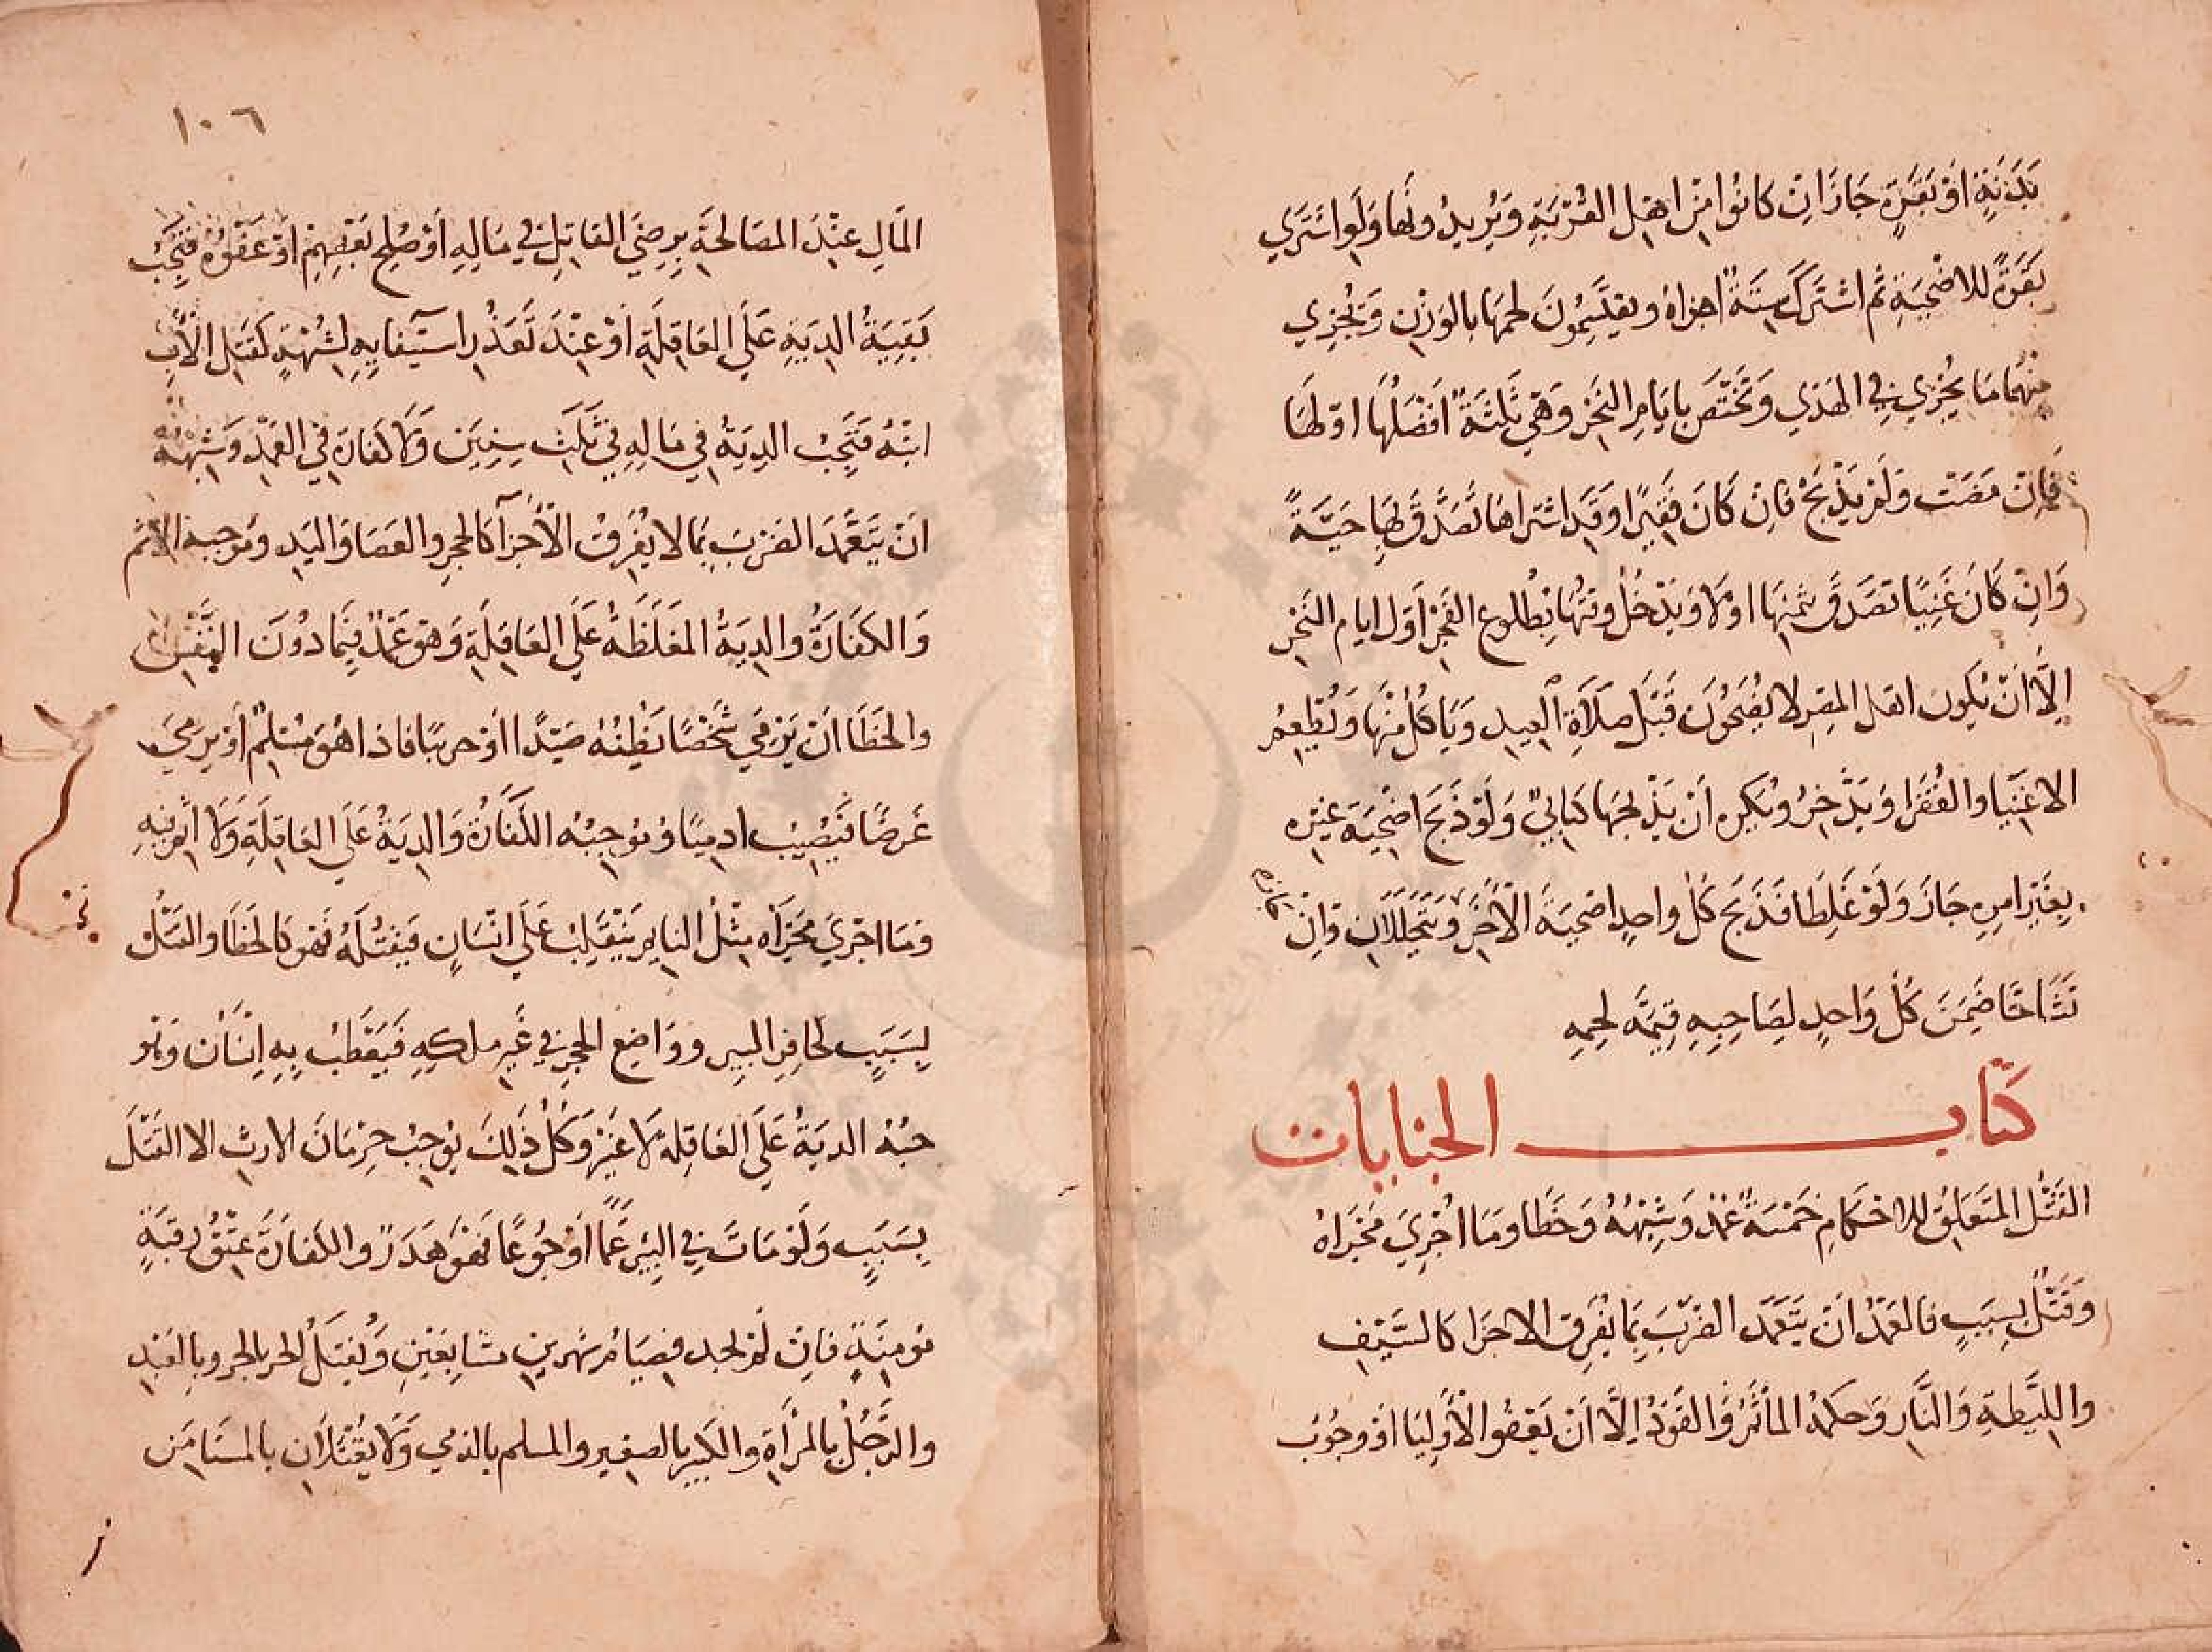 بَدَنَةٍ اوْ بَقَرَةٍ جَازَ اِنْ كانُوا مِنْ اهْلِ القُرْبَةِ وَيُرِيدُونَها وَلَوِ اشتَرَي
بَقَرَةً للاضْحِيَةِ ثم اشتَرَكَ سِتَّةٌ اجزاهُ ويقتَسِمُونَ لحمَهَا بالوَزْنِ وَيُجْزِي
مِنْهُمَا مَا يُجْزِي فِي الهَدْي وَتَخْتَصُّ بايَامِ النَحْرِ وَهْيَ ثَلثَةٌ افضَلُهَا اوّلهَا
فَاِنْ مَضَت وَلَمْ يَذْبَحْ فَاِنْ كَانَ فَقِيرًا وَقَدِ اشتراهَا تَصَدَّقَ بِهَا حَيَّةً
وَاِنْ كَانَ غَنِيًا تصَدَّقَ بثَمَنِهَا اوْلا وَيَدْخُلُ وقتُهَا بِطُلوعِ الفَجْرِ اوَل ايام النَحْرِ
اِلَّا اَنْ يَكونَ اهل المِصْرِ لا يُضَحُّونَ قَبْلَ صَلاَةِ العِيدِ وَيَاكُلُ مِنْهَا وَيُطْعِمُ
الاغْنِيَا والفُقَرَا وَيَدَّخِرُ ويُكْرَه اَنْ يَذْبحَهَا كتَابِيٌ وَلَوْ ذَبَحَ اضْحِيَةَ غَيْرِهِ
بِغَيْرِ امرِهِ جَازَ وَلَوْ غَلِطَا فَذَبَحَ كُل واحدٍ اضحيَةَ الْآخَرِ وَيَتَحَلَّلَانِ وَاِنْ
تَشَاحَّا ضَمِنَ كُل وَاحِدٍ لِصَاحِبِهِ قِيمَةَ لحمِهِ
كتاب الجنايات
القَتْل المتَعَلِقُ بالاحْكَامِ خَمْسَةٌ عَمْدٌ وَشِبْهُهُ وَخَطَا وَمَا اُجْرِيَ مَجْرَاهُ
وَقَتْلٌ بسَبَبٍ فالعَمْدُ انْ يَتَعَمَّدَ الضَرْبَ بِمَا يُفَرِقُ الاجزَا كالسَّيْفِ
واللِيطَةِ وَالنَّارِ وَحكمُهُ المَأثَمُ وَالقَوَدُ اِلَّا اَنْ يَعْفُوا الأَوْلِيَا اوْ وجُوبُ
١٠٦
المَالِ عِنْدَ المصَالحَةِ بِرِضَي القَاتِلِ فِي مَالِهِ أوْ صُلحِ بَعْضِهِمْ اوْ عَفْوِهِ فَتَجِبُ
بَقِيَةُ الدِيَةِ عَلَي العَاقِلَةِ اوْ عِنْدَ تَعَذُّرِ استيفايِهِ لِشُبْهَةٍ كَقَتلِ الْأَبِ
ابْنَهُ فَتَجِبُ الدِيَةُ فِي مَالِهِ فِي ثَلَث سِنِينَ وَلَا كفارَةَ فِي العَمْدِ وَشِبْهُهُ
انْ يَتَعَمَّدَ الضَرْبَ بِمَا لا يُفَرِقُ الْأَجْزَآ كالحجر والعَصَا وَاليَدِ ومُوجَبهُ الاثم
وَالكَفَارَةُ والدِيَةُ المغَلَظَةُ عَلَي العَاقِلَةِ وَهْوَ عَمْدٌ فِيَما دُونَ النَّفْس
والخَطَا انْ يَرْمي شَخْصًا يَظُنُهُ صَيْدًا اوْ حربيًا فاذا هُوَ مُسْلِمٌ أوْ يرمي
غَرضًا فَيُصِيبُ ادميًا وَمُوجَبُه الكَفَارَةُ وَالدِيَةُ عَلَي العَاقِلَةِ وَلَا اثْمَ فِيهِ
وَمَا اجْرِيَ مَجْرَاه مِثْلُ النايم يَنْقَلِبُ عَلَي انْسَانٍ فيَقْتُلُهُ فهْوَ كالخَطَا والقتْلُ
بِسَبَبٍ كحَافِرِ البيرِ ووَاضع الحجرِ فِي غَيْر ملكِهِ فَيَعْطَبُ بِهِ اِنسَانٌ وَمُو
جبُهُ الدِيَةُ عَلَي العَاقِلةِ لَا غَيْرُ وكُلُ ذَلِكَ يُوجِبُ حِرْمَانَ الارث الا القَتْلَ
بِسَبَبٍ وَلَوْ مَاتَ فِي البِيرِ غَمًّا اوْ جُوعًا فهْوَ هَدَرٌ والكَفارَةُ عِتْقُ رقبَةٍ
مُومِنَةٍ فَاِنْ لَمْ يجد فصِيَامُ شهرَينِ متتَابِعَيْنِ وَيُقْتَلُ الحر بالحر وبِالعَبْدِ
والرَّجُلُ بالمرْأةِ والكَبير بالصغير والمسلم بالذمي وَلَا يُقْتَلَانِ بالمستامَن